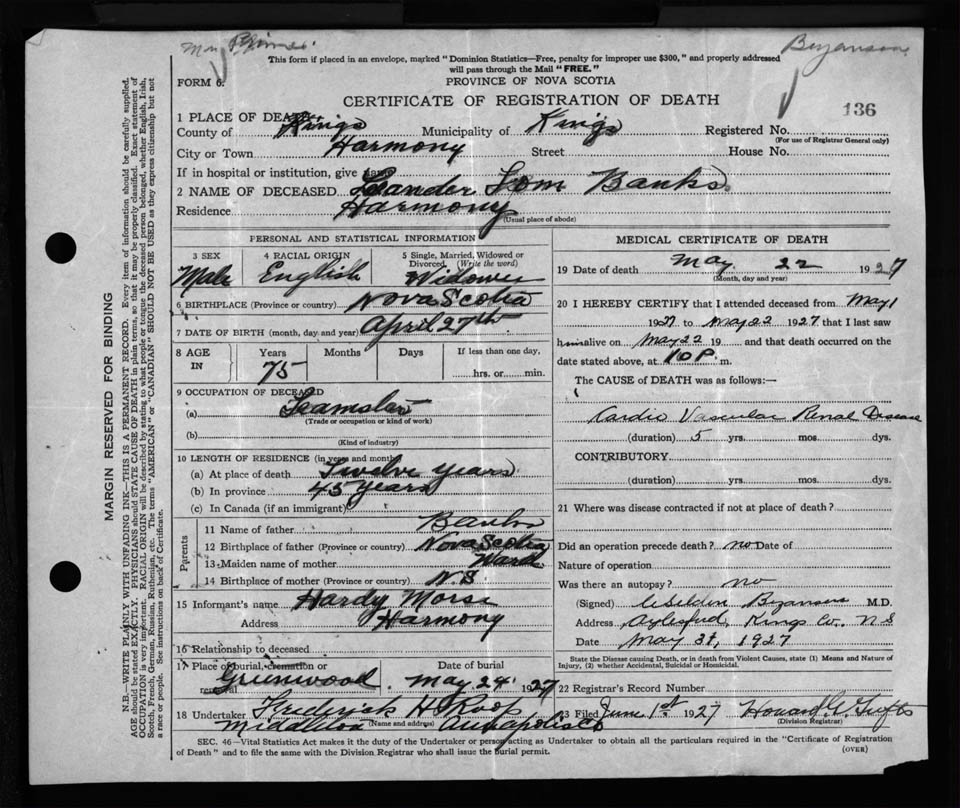 Bezanson
This form if placed in an envelope, marked "Dominion Statistics—Free, penalty for improper use $300," and properly addressed
will pass through the Mail "FREE."
FORM 6.
PROVINCE OF NOVA SCOTIA
CERTIFICATE OF REGISTRATION OF DEATH
136
1 PLACE OF DEATH
County of Kings Municipality of Kings Registered No.
(For use of Registrar General only)
City or Town Harmony Street House No.
If in hospital or institution, give name
2 NAME OF DECEASED Leander Tom Banks
Residence Harmony
(Usual place of abode)
PERSONAL AND STATISTICAL INFORMATION
3 SEX 4 RACIAL ORIGIN 5 Single, Married, Widowed or Divorced. (Write the word)
Male English Widower
6 BIRTHPLACE (Province or country) Nova Scotia
7 DATE OF BIRTH (month, day and year) April 27th
8 AGE IN Years Months Days If less than one day,
75 hrs. or min.
9 OCCUPATION OF DECEASED
(a) Teamster
(Trade or occupation or kind of work)
(b)
(Kind of industry)
10 LENGTH OF RESIDENCE (in years and months)
(a) At place of death Twelve years
(b) In province 45 years
(c) In Canada (if an immigrant)
Parents
11 Name of father Banks
12 Birthplace of father (Province or country) Nova Scotia
13 Maiden name of mother Ward
14 Birthplace of mother (Province or country) N.S.
15 Informant's name Hardy Morse
Address Harmony
16 Relationship to deceased
17 Place of burial, cremation or removal Date of burial
Greenwood May 24 1927
18 Undertaker Frederick H Roop
(Name and address)
Middleton Annapolis Co
MEDICAL CERTIFICATE OF DEATH
19 Date of death May 22 1927
(Month, day and year)
20 I HEREBY CERTIFY that I attended deceased from May 1
1927 to May 22 1927 that I last saw
him alive on May 22 19 and that death occurred on the
date stated above, at 10 P. m.
The CAUSE of DEATH was as follows:—
Cardio Vascular Renal Disease
(duration) 5 yrs. mos. dys.
CONTRIBUTORY
(duration) yrs. mos. dys.
21 Where was disease contracted if not at place of death?
Did an operation precede death? no Date of
Nature of operation
Was there an autopsy? no
(Signed) Bezanson M.D.
Address Aylesford, Kings Co., N S
Date May 31, 1927
State the Disease causing Death, or in death from Violent Causes, state (1) Means and Nature of
Injury, (2) whether Accidental, Suicidal or Homicidal.
22 Registrar's Record Number
23 Filed June 1st 1927 Howard
(Division Registrar)
SEC. 46—Vital Statistics Act makes it the duty of the Undertaker or person acting as Undertaker to obtain all the particulars required in the "Certificate of Registration
of Death" and to file the same with the Division Registrar who shall issue the burial permit.
(OVER)
MARGIN RESERVED FOR BINDING
N.B.—WRITE PLAINLY WITH UNFADING INK—THIS IS A PERMANENT RECORD. Every item of information should be carefully supplied.
AGE should be stated EXACTLY. PHYSICIANS should STATE CAUSE OF DEATH in plain terms, so that it may be properly classified. Exact statement of
OCCUPATION is very important. RACIAL ORIGIN will be described by stating to what people or tongue the deceased person belonged, whether English, Irish,
Scotch, French, German, Russian, Ruthenian, etc. The terms "AMERICAN" or "CANADIAN" SHOULD NOT BE USED as they express citizenship but not
a race or people. See instructions on back of Certificate.